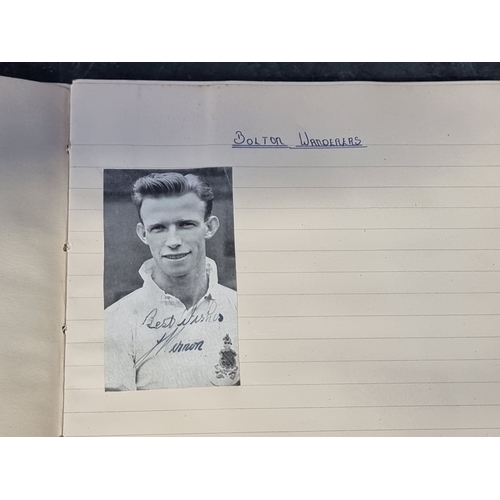 BOLTON WANDERERS
Best Wishes
Vernon